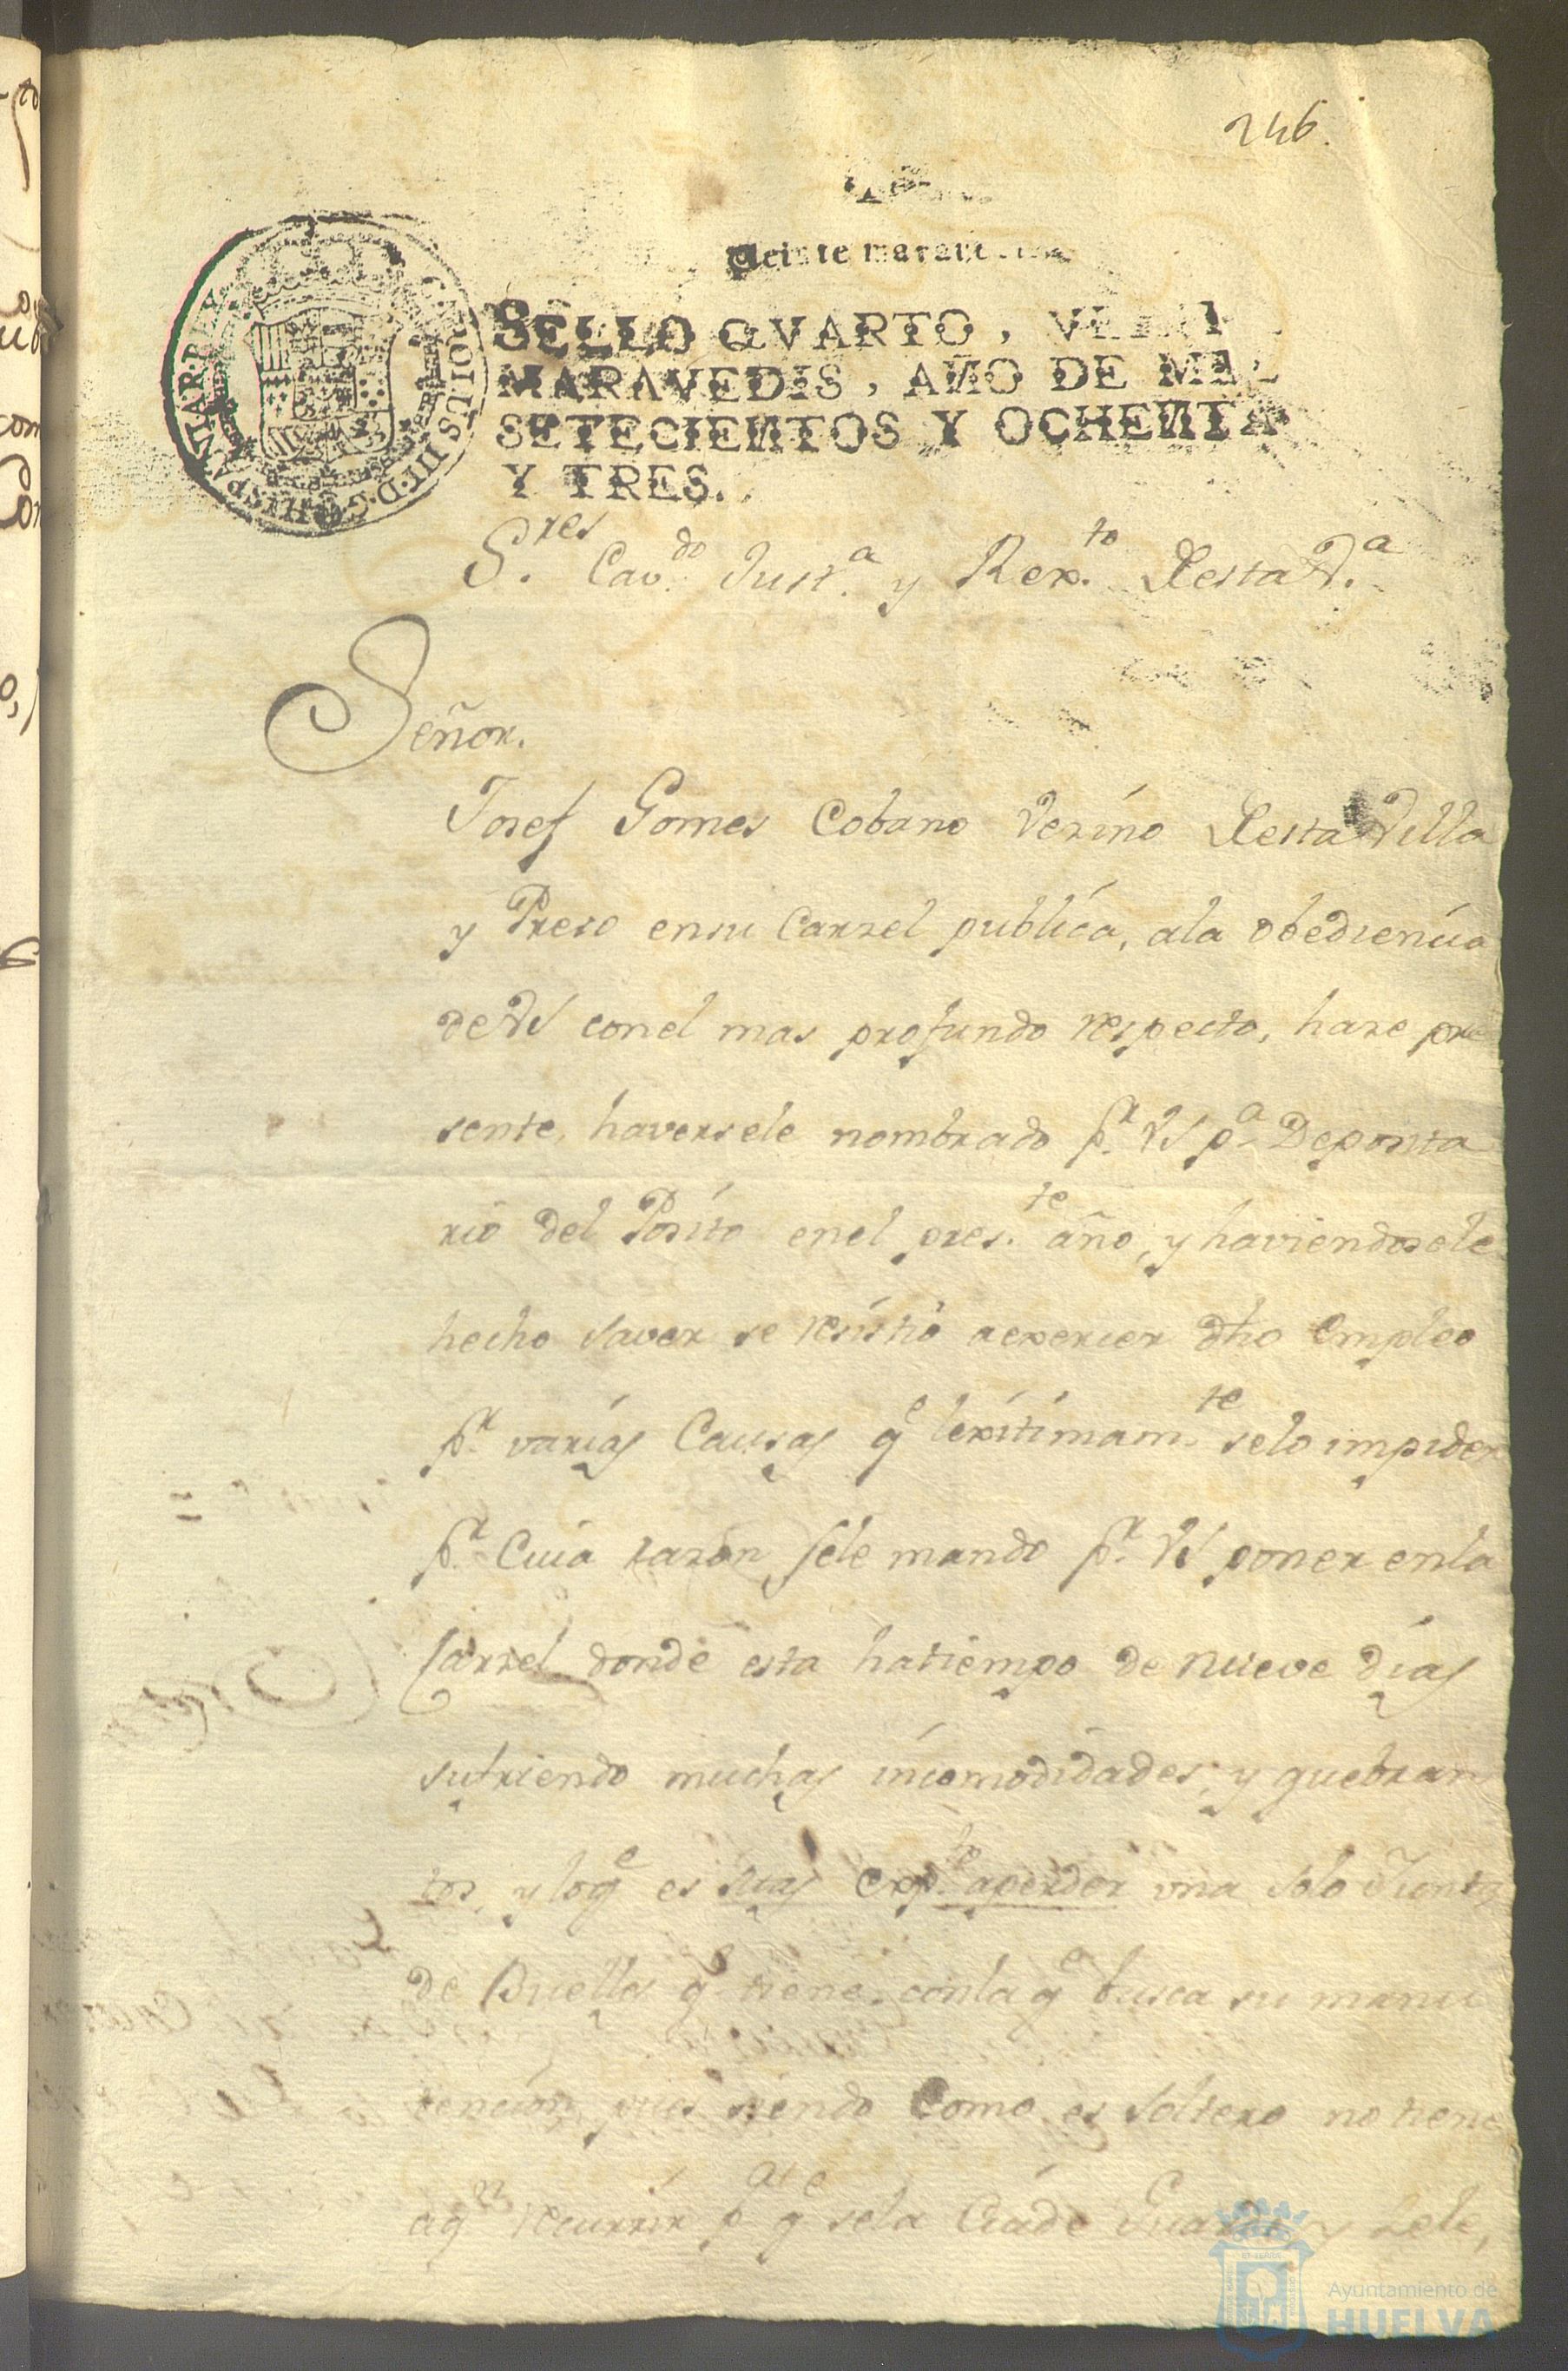 246.
Veinte marave
SELLO QVARTO, VEINT
MARAVEDIS, AÑO DE MIL
SETECIENTOS Y OCHENTA
Y TRES.
S.res Cav.do Just.a y Rex.to Desta V.a
Señor.
Josef Gomes Cobano Vezino Desta Villa
y Preso ensu Carzel publica, ala obediencia
de VS conel mas profundo respecto, haze pre
sente, haversele nombrado p.r VS p.a Deposita
rio del Posito enel pres.te año, y haviendosele
hecho saver se resistió aexercer dho Empleo
p.r varias Causas q.e lexitimam.te selo impiden
p.r Cuia razon sele mando p.r VS poner enla
Carzel donde esta hatiempo de nueve dias
sufriendo muchas incomodidades, y quebran
tos, y loq.e es mas exp.to aperder una sola Iunta
de Buelles q.e tiene, conla q.e busca su manu
tencion, pues siendo Como es soltero no tiene
aq.n recurrir p.a q.e sela Cuide Guarde y Zele,
HISPANIAR.REX
III.D.G.
Ayuntamiento de
HUELVA